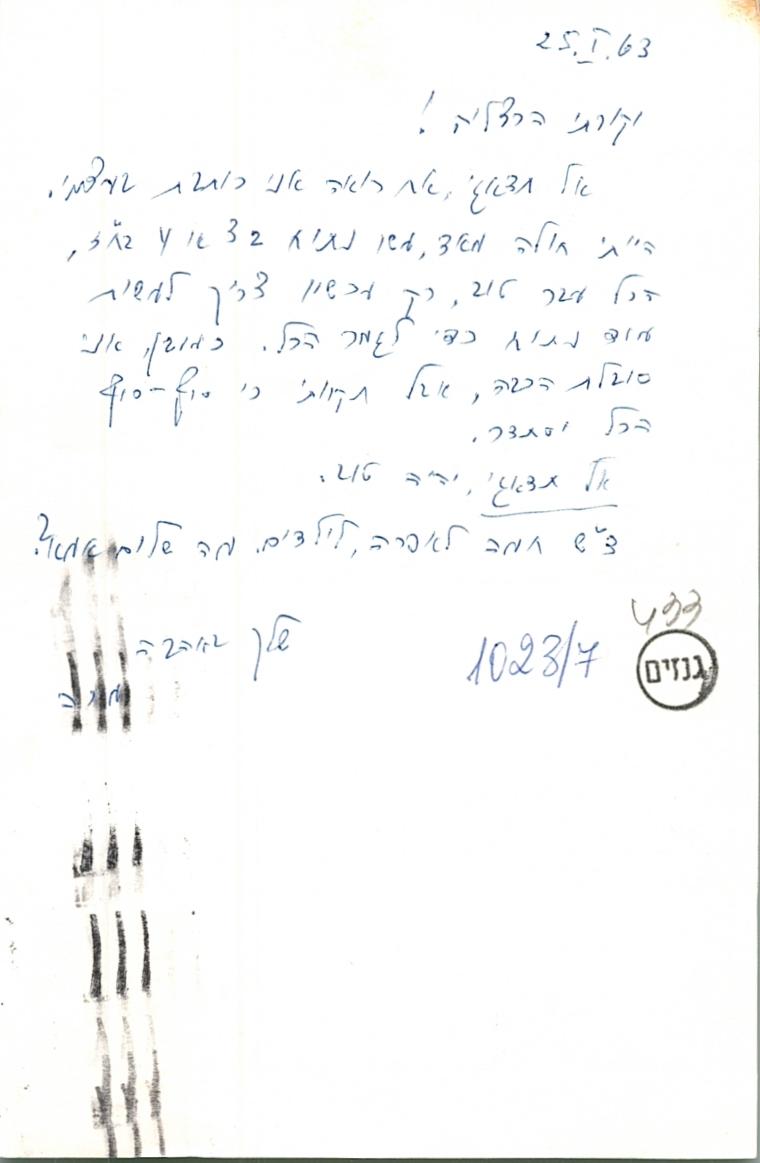 25.I.63
יקירתי הרצליה!
אל תדאגי, את רואה אני כותבת בעצמי.
הייתי חולה מאד, עשו נתוח ב 3 או 4
הכל עבר טוב, רק עכשיו צריך לעשות
עוד נתוח כדי לגמר הכל. כמובן, אני
סובלת הרבה, אבל תקותי כי סוף-סוף
הכל יסתדר.
אל תדאגי, יהיה טוב.
ד"ש חמה לאפרה, לילדים. מה שלום אמא?
שלך באהבה
433
1023/7
גנזים